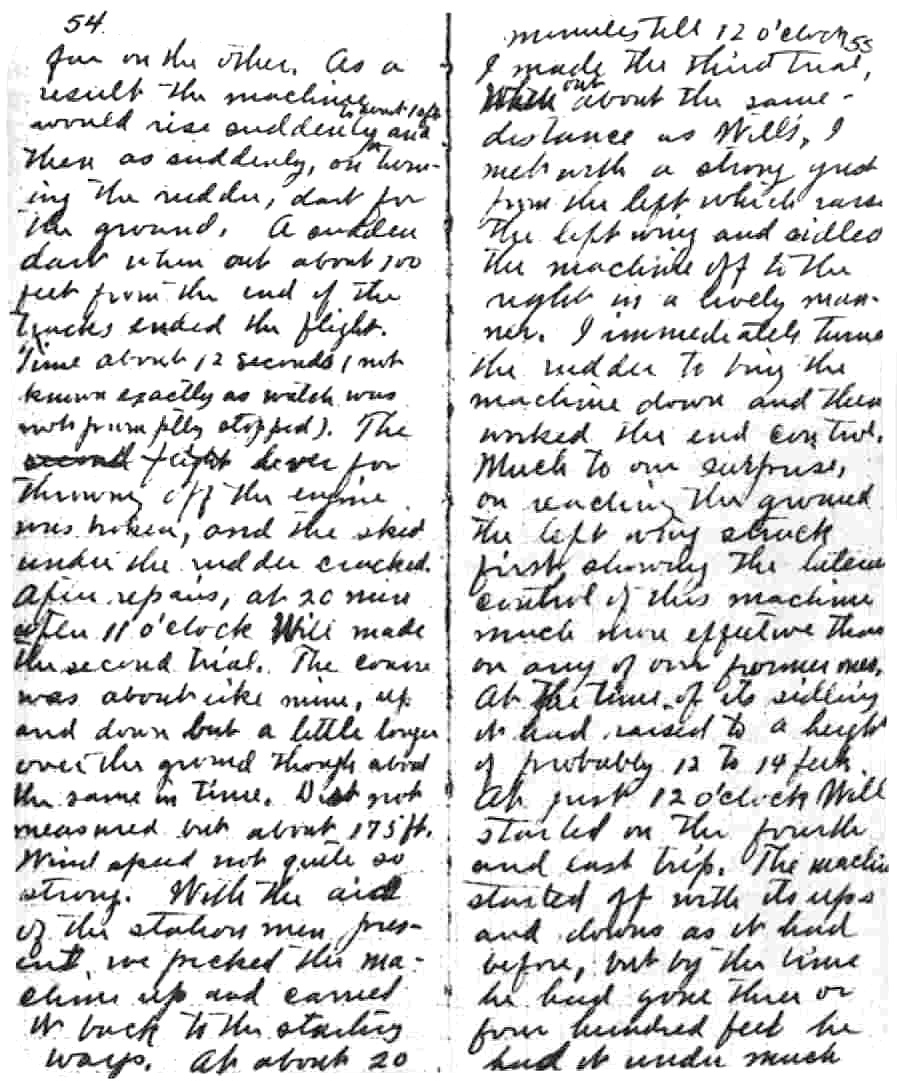 54
far on the other. As a
result the machine
would rise suddenly to about 10 ft and
then as suddenly, on turn-
ing the rudder, dart for
the ground. A sudden
dart when out about 100
feet from the end of the
tracks ended the flight.
Time about 12 seconds (not
known exactly as watch was
not promptly stopped). The
second flight lever for
throwing off the engine
was broken, and the skid
under the rudder cracked.
After repairs, at 20 min
after 11 o'clock Will made
the second trial. The course
was about like mine, up
and down but a little longer
over the ground though about
the same in time. Dist not
measured but about 175 ft.
Wind speed not quite so
strong. With the aid
of the station men pres-
ent, we picked the ma-
chine up and carried
it back to the starting
ways. At about 20
55
minutes till 12 o'clock
I made the third trial,
When out about the same
distance as Will's, I
met with a strong gust
from the left which raised
the left wing and sidled
the machine off to the
right in a lively man-
ner. I immediately turned
the rudder to bring the
machine down and then
worked the end control.
Much to our surprise,
on reaching the ground
the left wing struck
first, showing the lateral
control of this machine
much more effective than
on any of our former ones.
At the time of its sidling
it had raised to a height
of probably 12 to 14 feet.
At just 12 o'clock Will
started on the fourth
and last trip. The machine
started off with its ups
and downs as it had
before, but by the time
he had gone three or
four hundred feet he
had it under much